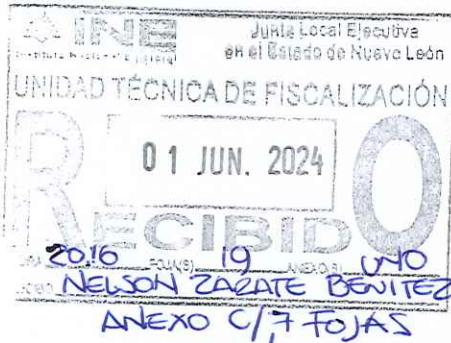 INE
Instituto Nacional Electoral
Junta Local Ejecutiva
en el Estado de Nuevo León
UNIDAD TÉCNICA DE FISCALIZACIÓN
RECIBIDO
01 JUN. 2024
20:16 19 UNO
FOJA(S) ANEXO(S)
NELSON ZARATE BENITEZ
ANEXO C/7 FOJAS